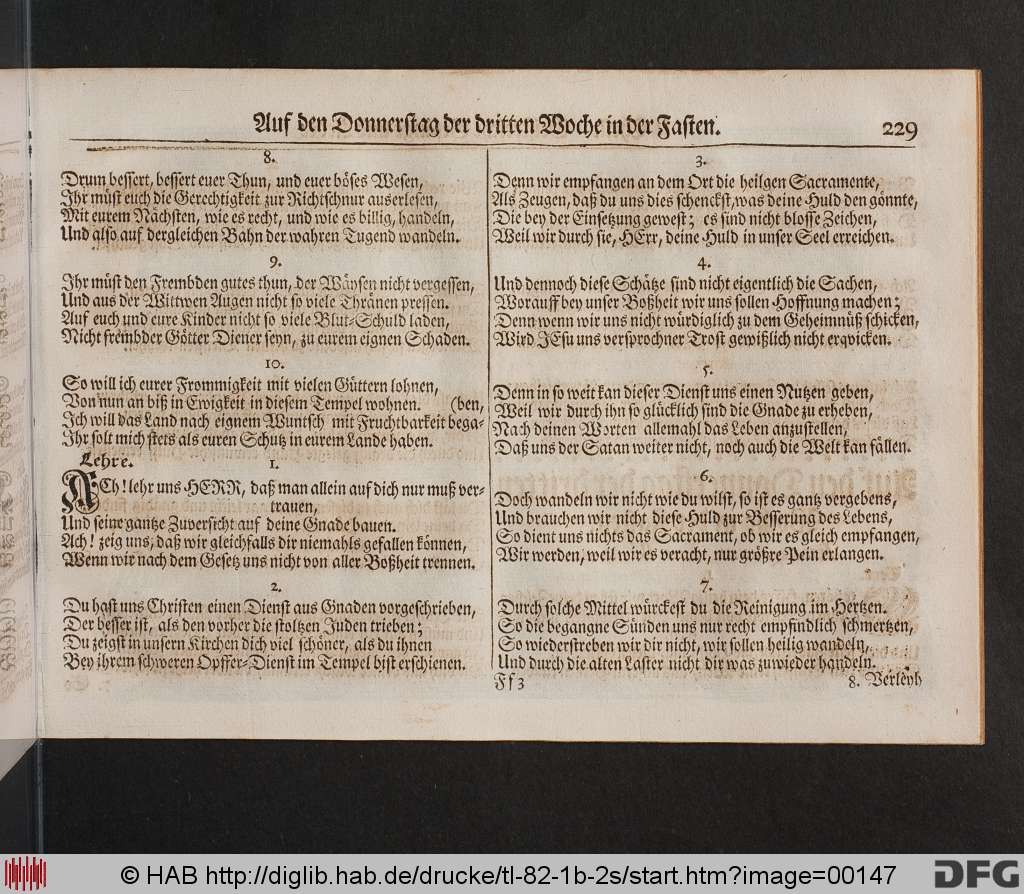 Auf den Donnerstag der dritten Woche in der Fasten.
229
8.
Drum bessert, bessert euer Thun, und euer böses Wesen,
Ihr müst euch die Gerechtigkeit zur Richtschnur auserlesen,
Mit eurem Nächsten, wie es recht, und wie es billig, handeln,
Und also auf dergleichen Bahn der wahren Tugend wandeln.
9.
Ihr müst den Frembden gutes thun, der Wäysen nicht vergessen,
Und aus der Wittwen Augen nicht so viele Thränen pressen.
Auf euch und eure Kinder nicht so viele Blut-Schuld laden,
Nicht frembder Götter Diener seyn, zu eurem eignen Schaden.
10.
So will ich eurer Frommigkeit mit vielen Güttern lohnen,
Von nun an biß in Ewigkeit in diesem Tempel wohnen. (ben,
Ich will das Land nach eignem Wuntsch mit Fruchtbarkeit bega-
Ihr solt mich stets als euren Schutz in eurem Lande haben.
Lehre. 1.
ACh! lehr uns HERR, daß man allein auf dich nur muß ver-
trauen,
Und seine gantze Zuversicht auf deine Gnade bauen.
Ach! zeig uns, daß wir gleichfalls dir niemahls gefallen können,
Wenn wir nach dem Gesetz uns nicht von aller Boßheit trennen.
2.
Du hast uns Christen einen Dienst aus Gnaden vorgeschrieben,
Der besser ist, als den vorher die stoltzen Juden trieben;
Du zeigst in unsern Kirchen dich viel schöner, als du ihnen
Bey ihrem schweren Opffer-Dienst im Tempel bist erschienen.
3.
Denn wir empfangen an dem Ort die heilgen Sacramente,
Als Zeugen, daß du uns dies schenckst, was deine Huld den gönnte,
Die bey der Einsetzung gewest; es sind nicht blosse Zeichen,
Weil wir durch sie, HErr, deine Huld in unser Seel erreichen.
4.
Und dennoch diese Schätze sind nicht eigentlich die Sachen,
Worauff bey unser Boßheit wir uns sollen Hoffnung machen;
Denn wenn wir uns nicht würdiglich zu dem Geheimnüß schicken,
Wird JEsu uns versprochner Trost gewißlich nicht erqvicken.
5.
Denn in so weit kan dieser Dienst uns einen Nutzen geben,
Weil wir durch ihn so glücklich sind die Gnade zu erheben,
Nach deinen Worten allemahl das Leben anzustellen,
Daß uns der Satan weiter nicht, noch auch die Welt kan fällen.
6.
Doch wandeln wir nicht wie du wilst, so ist es gantz vergebens,
Und brauchen wir nicht diese Huld zur Besserung des Lebens,
So dient uns nichts das Sacrament, ob wir es gleich empfangen,
Wir werden, weil wir es veracht, nur größre Pein erlangen.
7.
Durch solche Mittel würckest du die Reinigung im Hertzen.
So die begangne Sünden uns nur recht empfindlich schmertzen,
So wiederstreben wir dir nicht, wir sollen heilig wandeln,
Und durch die alten Laster nicht dir was zuwieder handeln.
Ff 3
8. Verleyh
© HAB http://diglib.hab.de/drucke/tl-82-1b-2s/start.htm?image=00147
DFG